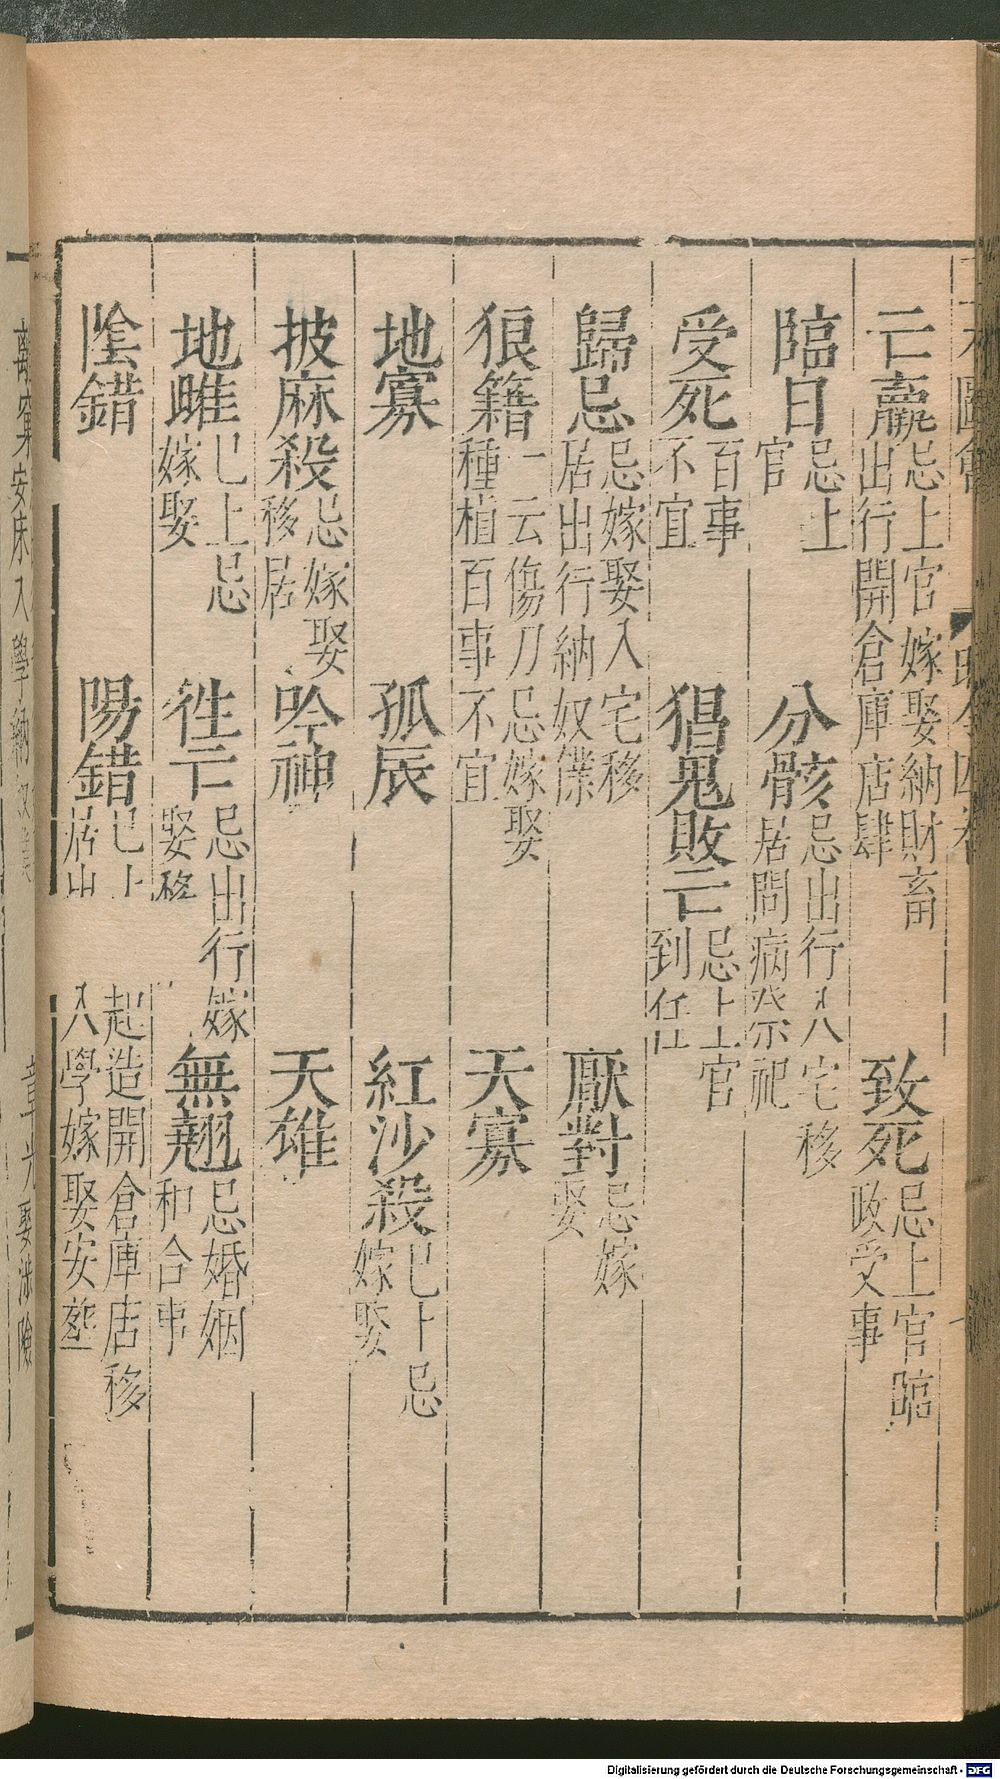 亡贏忌上官嫁娶納財畜出行開倉庫店肆　致死忌上官臨政受事
臨日忌上官　分骸忌出行入宅移居問病祭祀
受死百事不宜　猖鬼敗亡忌上官到任
歸忌忌嫁娶入宅移居出行納奴僕　厭對忌嫁娶
狼籍一云傷刀忌嫁娶種植百事不宜　天寡
地寡　孤辰　紅沙殺巳上忌嫁娶
披麻殺忌嫁娶移居　吟神　天雄
地雌巳上忌嫁娶　徃亡忌出行嫁娶移　無翹忌婚姻和合事
陰錯　陽錯巳上起造開倉庫店移居出入學嫁娶安塟
安床入學納
娶涉險
Digitalisierung gefördert durch die Deutsche Forschungsgemeinschaft - DFG